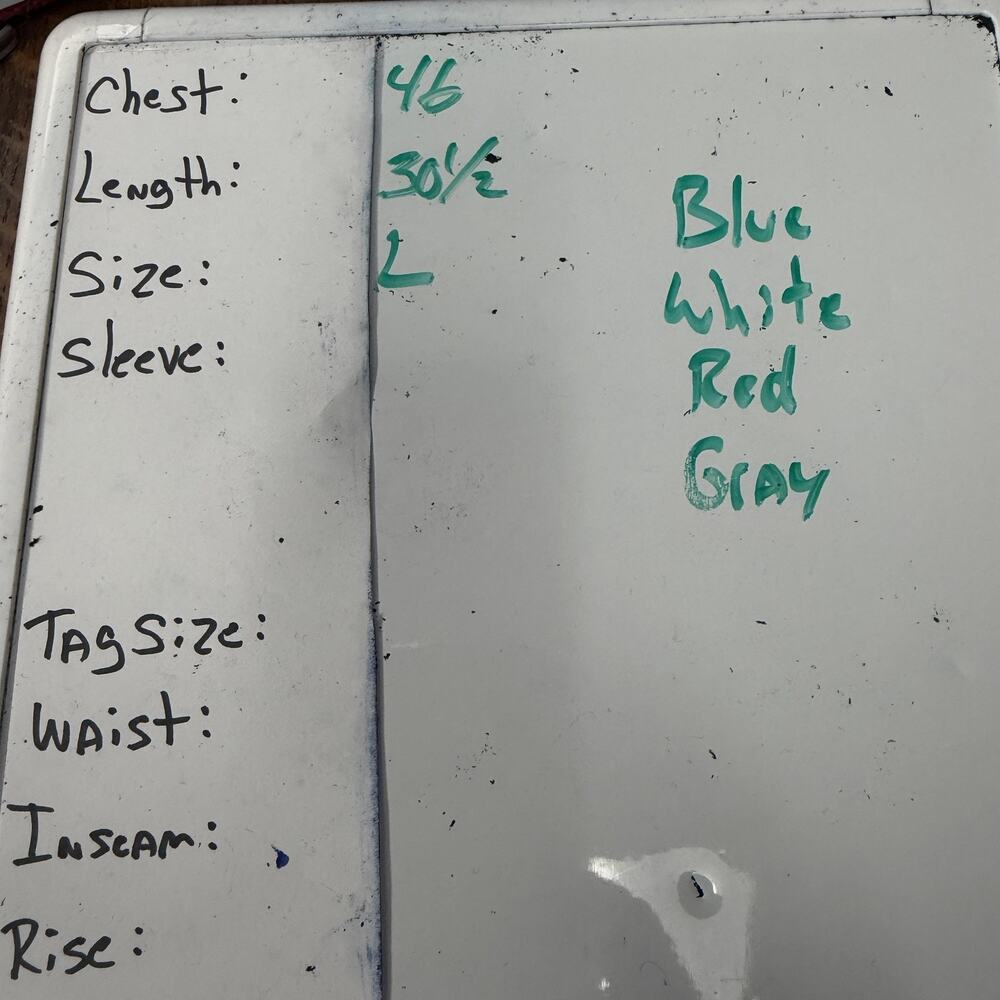 Chest: 46
Length: 30 1/2
Size: L
Sleeve:
Blue
White
Red
Gray
Tag Size:
Waist:
Inseam:
Rise: